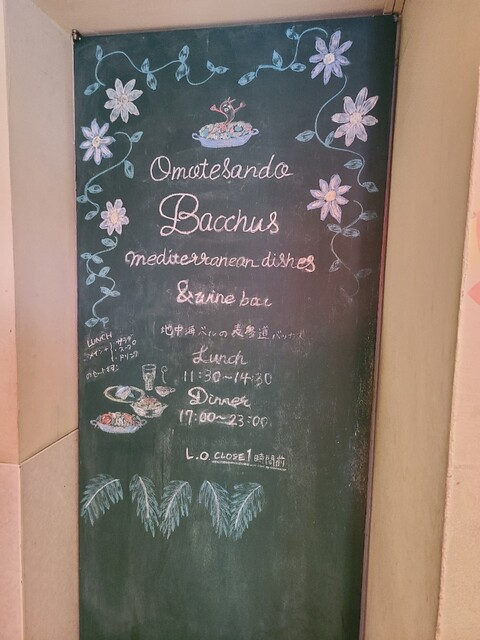 Omotesando
Bacchus
mediterranean dishes
& wine bar
地中海バルの表参道バッカス
LUNCH
メイン
サラダ
スープ
ドリンク
Lunch
11:30~14:30
Dinner
17:00~23:00
L.O CLOSE 1時間前